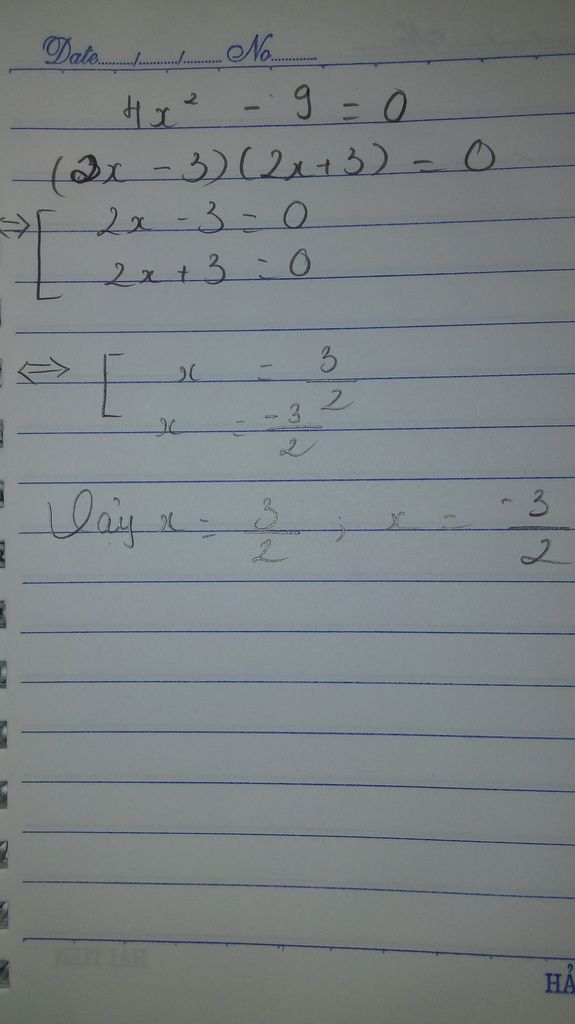 Date......./......../........ No..........
4x² - 9 = 0
(2x - 3)(2x+3) = 0
⇔ [ 2x - 3 = 0
2x + 3 = 0
⇔ [ x = 3/2
x = -3/2
Vậy x = 3/2 ; x = -3/2
HẢ